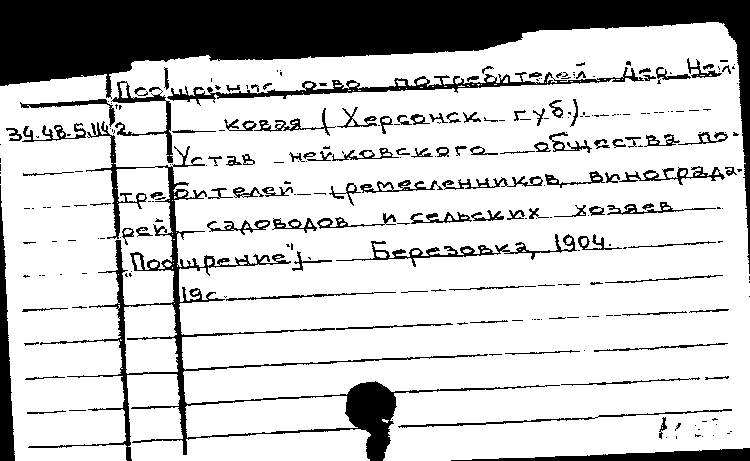 "Поощрение", о-во потребителей. Дер. Ней-
34.48.5.114 2. ковая (Херсонск. губ.).
Устав нейковского общества по-
требителей [ремесленников, винограда-
рей, садоводов и сельских хозяев
"Поощрение"]. Березовка, 1904.
19с.